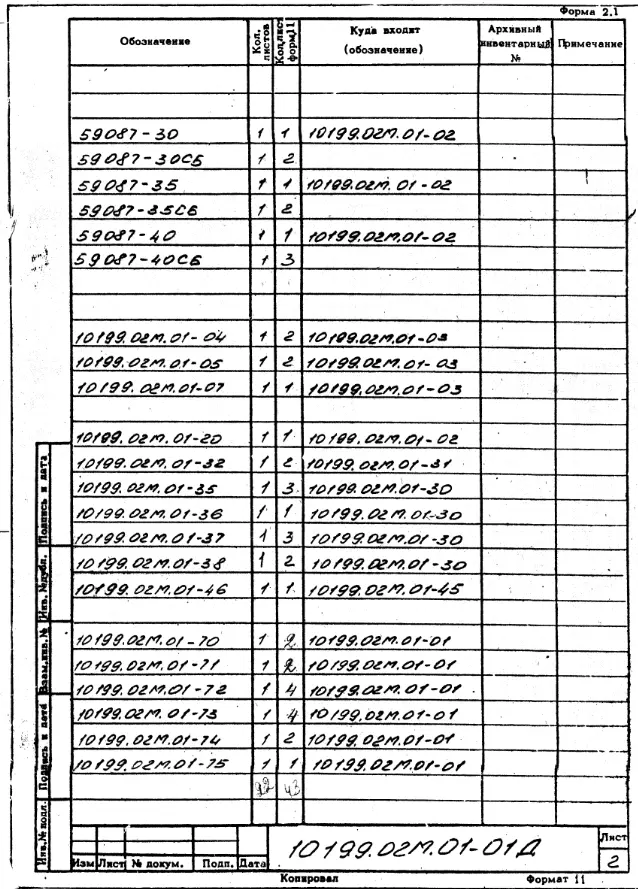 Форма 2.1
Обозначение Кол. листов Кол.лист форм.11 Куда входит (обозначение) Архивный инвентарный № Примечание
59087-30 1 1 10199.02М.01-02
59087-30СБ 1 2
59087-35 1 1 10199.02М.01-02
59087-35СБ 1 2
59087-40 1 1 10199.02М.01-02
59087-40СБ 1 3
10199.02М.01-04 1 2 10199.02М.01-03
10199.02М.01-05 1 2 10199.02М.01-03
10199.02М.01-07 1 1 10199.02М.01-03
10199.02М.01-20 1 1 10199.02М.01-02
10199.02М.01-32 1 2 10199.02М.01-31
10199.02М.01-35 1 3 10199.02М.01-30
10199.02М.01-36 1 1 10199.02М.01-30
10199.02М.01-37 1 3 10199.02М.01-30
10199.02М.01-38 1 2 10199.02М.01-30
10199.02М.01-46 1 1 10199.02М.01-45
10199.02М.01-70 1 2 10199.02М.01-01
10199.02М.01-71 1 2 10199.02М.01-01
10199.02М.01-72 1 4 10199.02М.01-01
10199.02М.01-73 1 4 10199.02М.01-01
10199.02М.01-74 1 2 10199.02М.01-01
10199.02М.01-75 1 1 10199.02М.01-01
22 43
Подпись и дата
Инв. №дубл.
Взам.инв.№
Подпись и дата
Инв.№ подл.
Изм Лист № докум. Подп. Дата
10199.02М.01-01Д
Лист
2
Копировал Формат 11